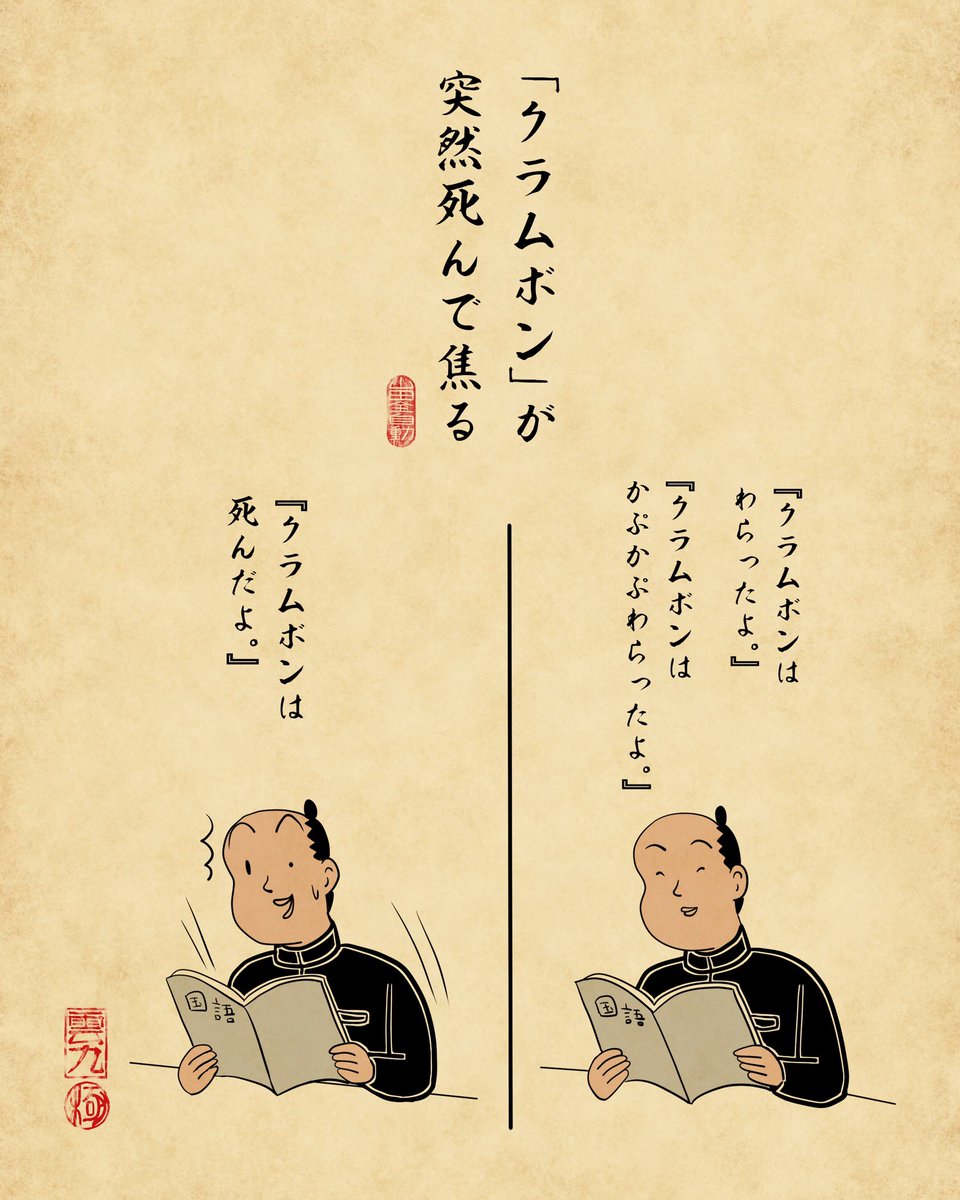 「クラムボン」が
突然死んで焦る
『クラムボンは
わらったよ。』
『クラムボンは
かぷかぷわらったよ。』
国語
『クラムボンは
死んだよ。』
国語